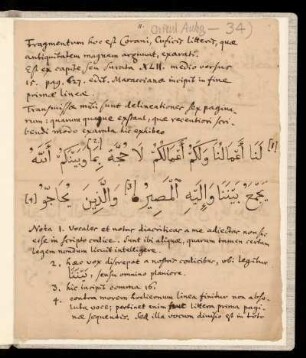 (Orient. Anhg. 34)
Fragmentum hoc est Corani, Cuficis litteris, quæ
antiquitatem magnam arguunt, exarati.
Est ex capite, seu Surata XLII. medio versus
15. pag. 627. edit. Maraccianæ incipit in fine
primæ lineæ.
Transmissæ mihi sunt delineationes sex pagina-
rum; quarum quæque exstant, quæ recentiori scri-
bendi modo exarata hic exhibeo
لَنَا أَعْمَالُنَا وَلَكُمْ أَعْمَالُكُمْ لَا حُجَّةَ بَيْنَنَا وَبَيْنَكُمْ اللَّهُ
يَجْمَعُ بَيْنَنَا وَإِلَيْهِ الْمَصِيرُ وَالَّذِينَ يُحَاجُّونَ
Nota 1. Vocales et notæ diacriticæ a me adiectæ non sic
esse in scripto codice. Sunt ibi aliquæ, quarum tamen certam
legem nondum licuit intelligere.
2. hæc vox discrepat a nostris codicibus, ubi legitur
بَيْنَنَا, sensu omnino planiore.
3. hic incipit comma 16.
4. contra morem hodiernum linea finitur non abso-
luta voce; pertinet enim litera prima pagi-
næ sequentis. Sed illa vocum divisio est in toto